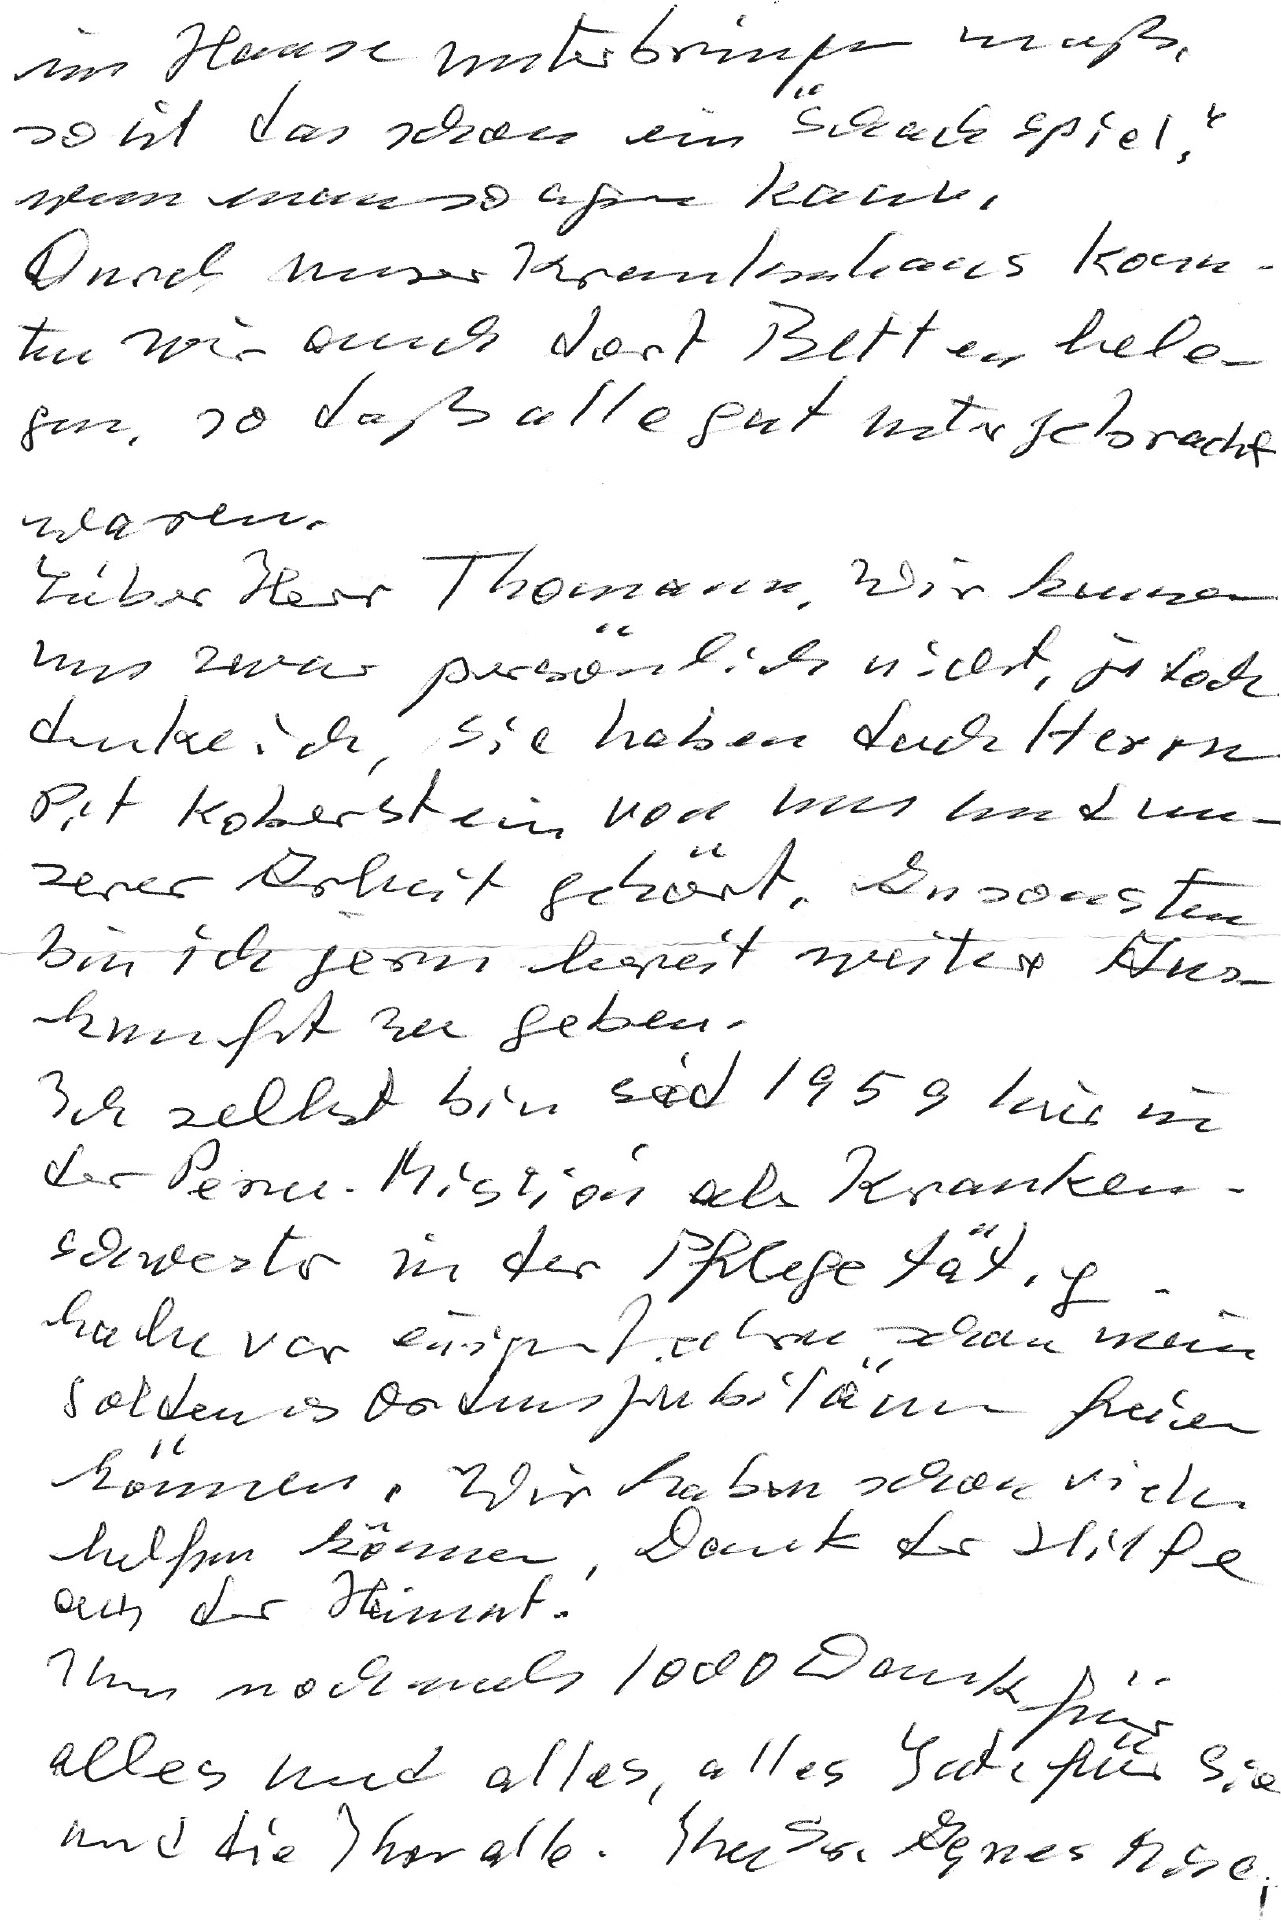 im Hause unterbringen muß,
so ist das schon ein "Schachspiel,"
wenn man so sagen kann.
Durch unser Krankenhaus konn-
ten wir auch dort Betten bele-
gen, so daß alle gut untergebracht
waren.
Lieber Herr Thomann, Wir kennen
uns zwar persönlich nicht, jedoch
denke ich, Sie haben durch Herrn
Pit Koberstein von uns und un-
serer Arbeit gehört. Ansonsten
bin ich gern bereit weitere Aus-
kunft zu geben.
Ich selbst bin seid 1959 hier in
der Peru-Mission als Kranken-
schwester in der Pflege tätig -
habe vor einigen Jahren schon mein
goldenes Ordensjubiläum feiern
können. Wir haben schon vielen
helfen können, Dank der Hilfe
aus der Heimat.
Nun nochmals 1000 Dank für
alles und alles, alles Gute für Sie
und die Ihren alle. Ihre Sr. Agnes